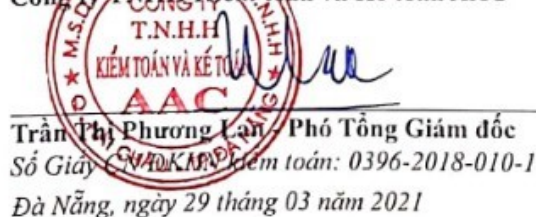 T.N.H.H
KIỂM TOÁN VÀ KẾ TOÁN
AAC
Trần Thị Phương Lan - Phó Tổng Giám đốc
Số Giấy CN ĐKHN kiểm toán: 0396-2018-010-1
Đà Nẵng, ngày 29 tháng 03 năm 2021